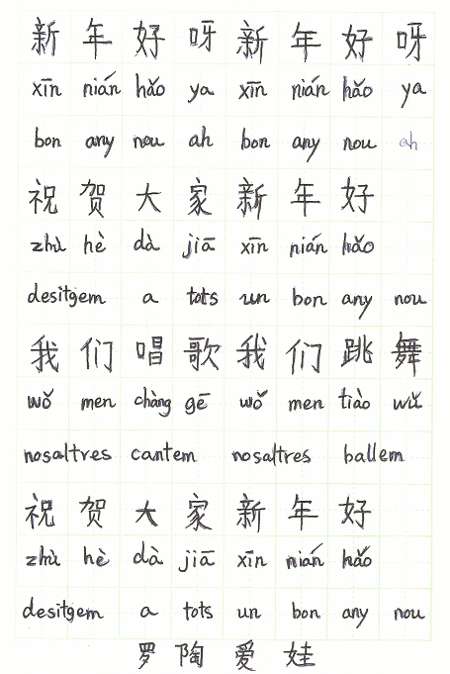 新年好呀新年好呀
xīn nián hǎo ya xīn nián hǎo ya
bon any nou ah bon any nou ah
祝贺大家新年好
zhù hè dà jiā xīn nián hǎo
desitgem a tots un bon any nou
我们唱歌我们跳舞
wǒ men chàng gē wǒ men tiào wǔ
nosaltres cantem nosaltres ballem
祝贺大家新年好
zhù hè dà jiā xīn nián hǎo
desitgem a tots un bon any nou
罗陶爱娃